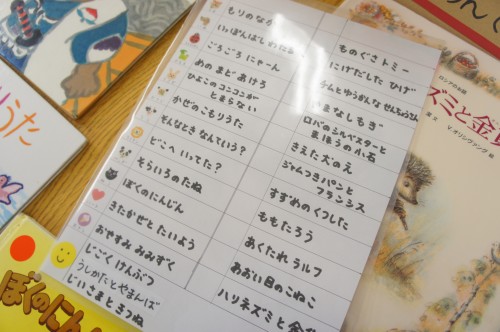 もりのなか
いっぽんばし
ごろごろ にゃーん
あのまど あけろ
ひよこの コニコニが
とまらない
かぜの こもりうた
そんなとき なんていう?
どこへ いってた?
そらいろの たね
ぼくの にんじん
きたかぜと たいよう
おやすみ みみずく
じごく けんぶつ
うしかたと やまんば
じいさまと きつね
ものぐさ トミー
にげだした ひげ
ゆうかんな せんちょうさん
ロバの シルベスターと
まほうの 小石
きえた 犬の え
ジャムつき パンと
フランシス
すずめの くつした
ももたろう
あくたれ ラルフ
あおい目の こねこ
ハリネズミと 金
りうた
ぼくのにん
ロシアのお話
ズミと金
V.オリシヴァング 絵